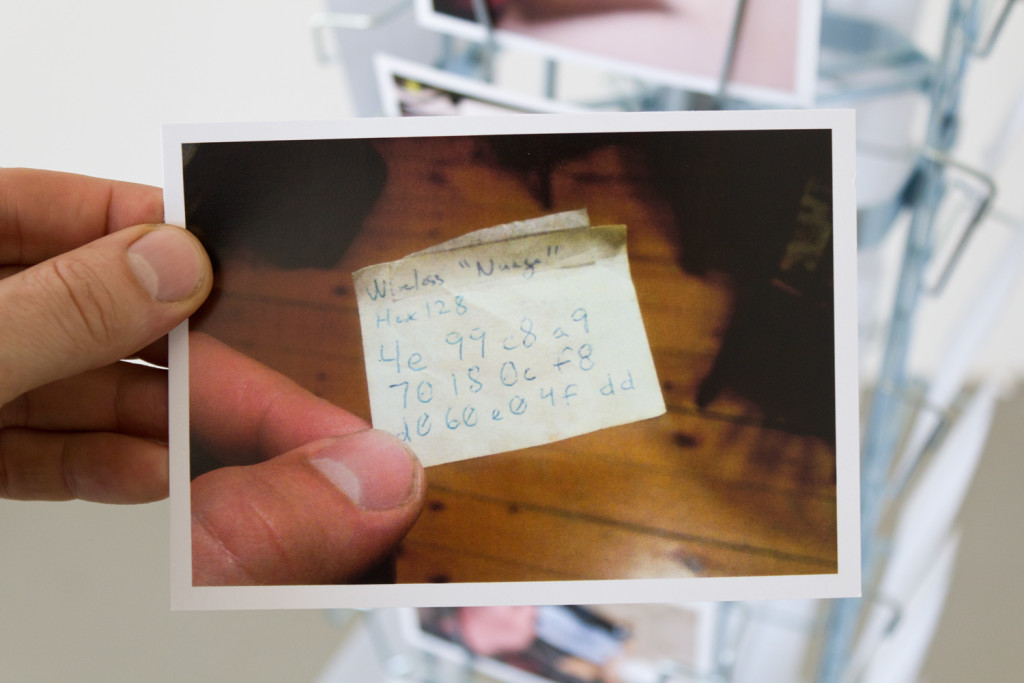 Wireless "Nuage"
Hex 128
4e 99 c8 a9
70 15 0c f8
d0 60 e0 4f dd